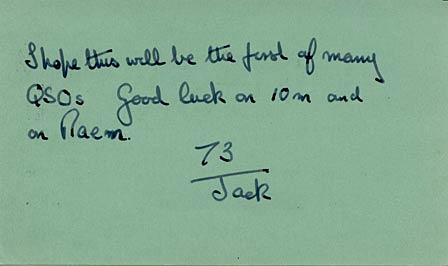 I hope this will be the first of many
QSOs Good luck on 10m and
on Raem.
73
Jack